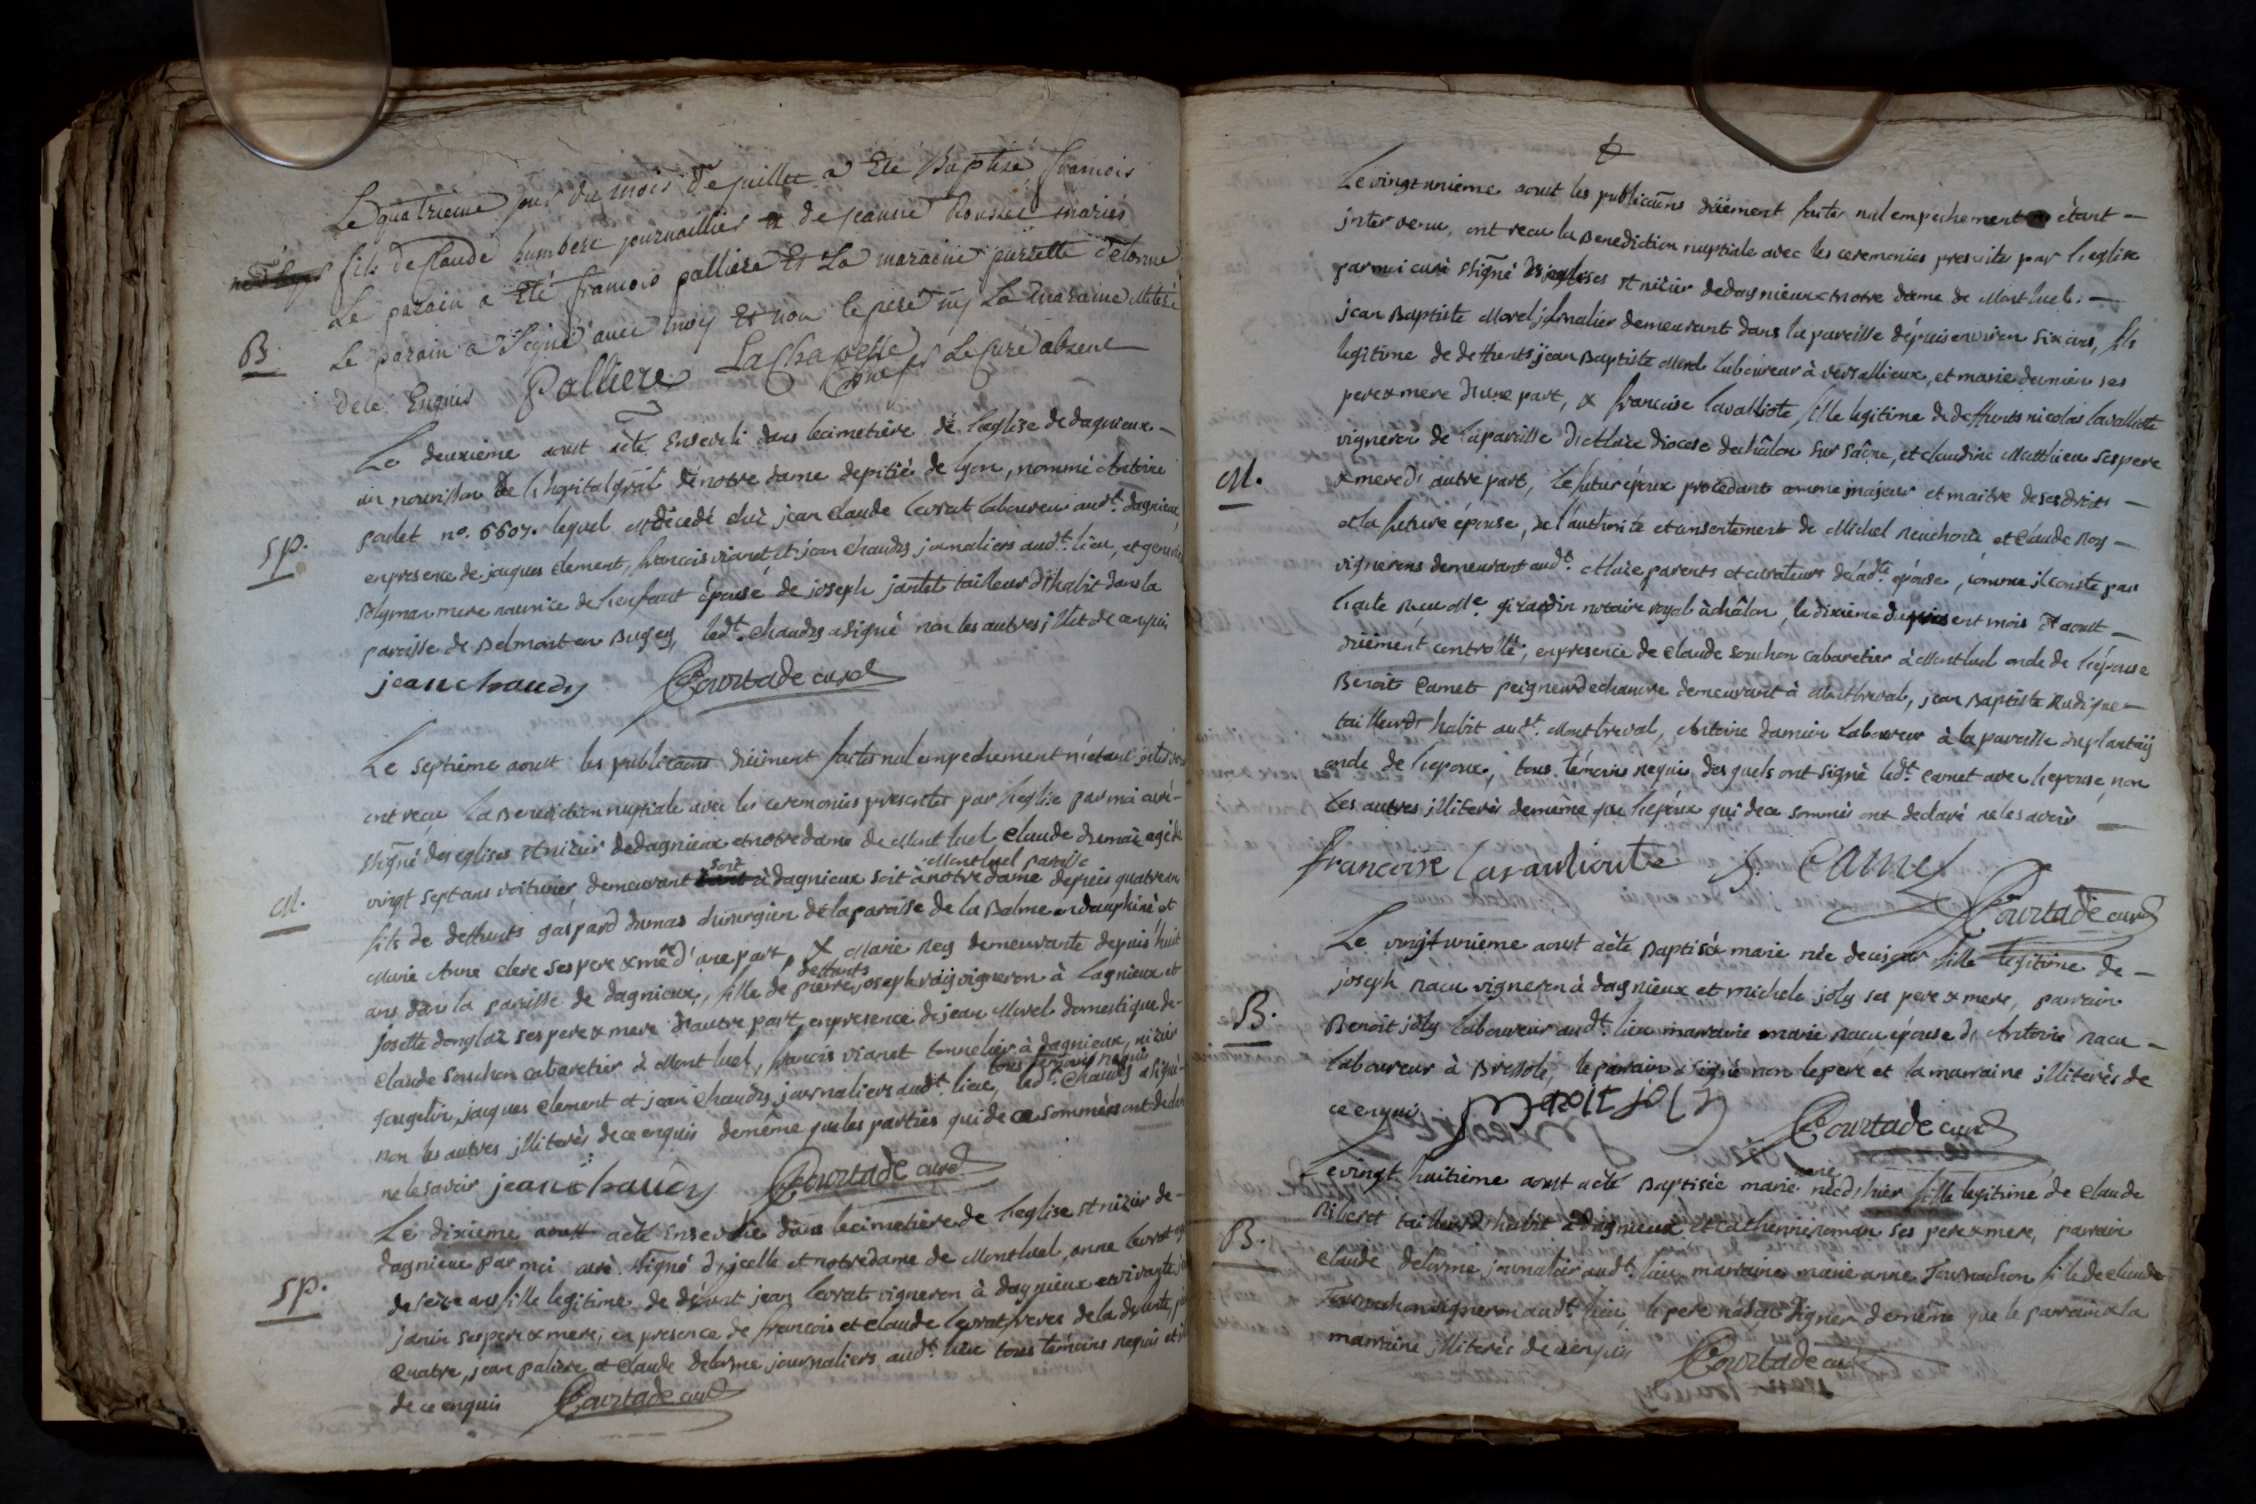 Le quatrieme jour du mois de juillet a Eté Baptisé francois
fils de Claude humbert journaillier et de jeanne mariés
Le parain a Eté francois palliere Et La maraine pierrette delorme
B. Le parain a Signé avec moy Et non le pere ny La maraine illiteré
de ce Enquis Palliere Lachapelle Le Curé absent
Le deuxieme aoust a été Enseveli dans le cimetiere de l'eglise de dagnieux
un nourisson de l'hopital gñal de notre dame de pitié de lyon, nommé Antoine
padet no. 6607. lequel est décedé chés jean claude levrat laboureur audt. dagnieux,
SP. en presence de jacques clement, francois vianet et jean chaudy journaliers audt. lieu, et
solyman mere nourrice de l'enfant épouse de joseph jantet tailleur d'habit dans la
paroisse de Belmont en Bugey, ledt. chaudy a signé non les autres illit. de ce enquis
jean chaudy Courtade curé
Le septieme aoust les publicaons düement faites nul empechement n'etant
ont reçu la Benediction nuptiale avec les ceremonies prescrites par l'eglise par moi curé
ssigné des eglises st nizier de dagnieux et notre dame de Mont luel claude dumas agé de
vingt sept ans voiturier, demeurant soit à dagnieux soit à Montluel paroisse notre dame depuis quatre ans
M. fils de deffunts gaspard dumas chirurgien de la paroisse de la Balme en dauphiné et
Marie Anne clere ses pere & mere d'une part, & Marie Rey demeurante depuis huit
ans dans la paroisse de dagnieux, fille de deffunts pierre joseph rey vigneron à lagnieux et
josette donglaz ses pere & mere d'autre part, en presence de jean Morel domestique de
claude souchon cabaretier à Mont luel, francois vianet tonnelier à dagnieux, nizier
jangelin, jacques clement et jean chaudy journaliers audt. lieu, tous temoins requis ledt. chaudy a signé
non les autres illiterés de ce enquis de même que les parties qui de ce sommées ont declaré
ne le savoir jean chaudy Courtade curé
Le dixieme aoust a été Ensevelie dans le cimetiere de l'eglise st nizier de
dagnieux par moi curé ssigné d'icelle et notre dame de Montluel, anne levrat
SP. de seize ans fille legitime de défunt jean levrat vigneron à dagnieux et vivante
janin ses pere & mere; en presence de francois et claude levrat freres de la defunte,
quatre, jean paliere et claude delorme journaliers audt. lieu tous témoins requis et
de ce enquis Courtade curé
Le vingt unieme aoust les publicaõns düement faites nul empechement n'étant
intervenu, ont recu la Benediction nuptiale avec les ceremonies prescrites par l'eglise
par moi curé ssigné des eglises st nizier de dagnieux et notre dame de Mont luel.
jean Baptiste Morel journalier demeurant dans la paroisse depuis environ six ans, fils
legitime de deffunts jean Baptiste Morel laboureur à versallieux, et marie damien ses
pere & mere d'une part, & francoise lavalliote fille legitime de deffunts nicolas lavalliote
vigneron de la paroisse d'Aluze diocese de châlon sur saône, et claudine Matthieu ses pere
M. & mere d'autre part, le futur époux procedant comme majeur et maitre de ses droits
et la future épouse, de l'authorité et consentement de Michel et claude
vignerons demeurant audt. Aluze parents et curateurs de ladte épouse, comme il conste par
l'acte reçu Me girardin notaire royal à châlon, le dixieme du present mois d'aoust
düement controllé, en presence de claude souchon cabaretier à Montluel oncle de l'épouse
Benoit Camet peigneur de chanvre demeurant à Montreval, jean Baptiste
tailleur d'habit audt. Montreval, Antoine damien Laboureur à la paroisse du plantay
oncle de l'epoux, tous témoins requis, des quels ont signé ledt. camet avec l'epouse, non
les autres illiterés de même que l'epoux qui de ce sommés ont declaré ne le savoir
francoise lavaulioute B. Camet
Courtade curé
Le vingt unieme aoust a été Baptisée marie née de ce jour fille legitime de
joseph nacu vigneron à dagnieux et michele joly ses pere & mere, parrain
B. Benoit joly laboureur audt. lieu marraine marie nacu épouse d'Antoine nacu
laboureur à Bressole, le parrain a signé non le pere et la marraine illiterés de
ce enquis Benoit joly Courtade curé
Le vingt huitieme aoust a été Baptisée marie anne née d'hier fille legitime de claude
Riberet tailleur d'habit à dagnieux et catherine roman ses pere & mere, parrain
B. claude delorme journalier audt. lieu, marraine marie anne Tournachon fille de claude
Tournachon vigneron audt. lieu, le pere n'a sçu signer de même que le parrain & la
marraine illiterés de ce enquis Courtade curé